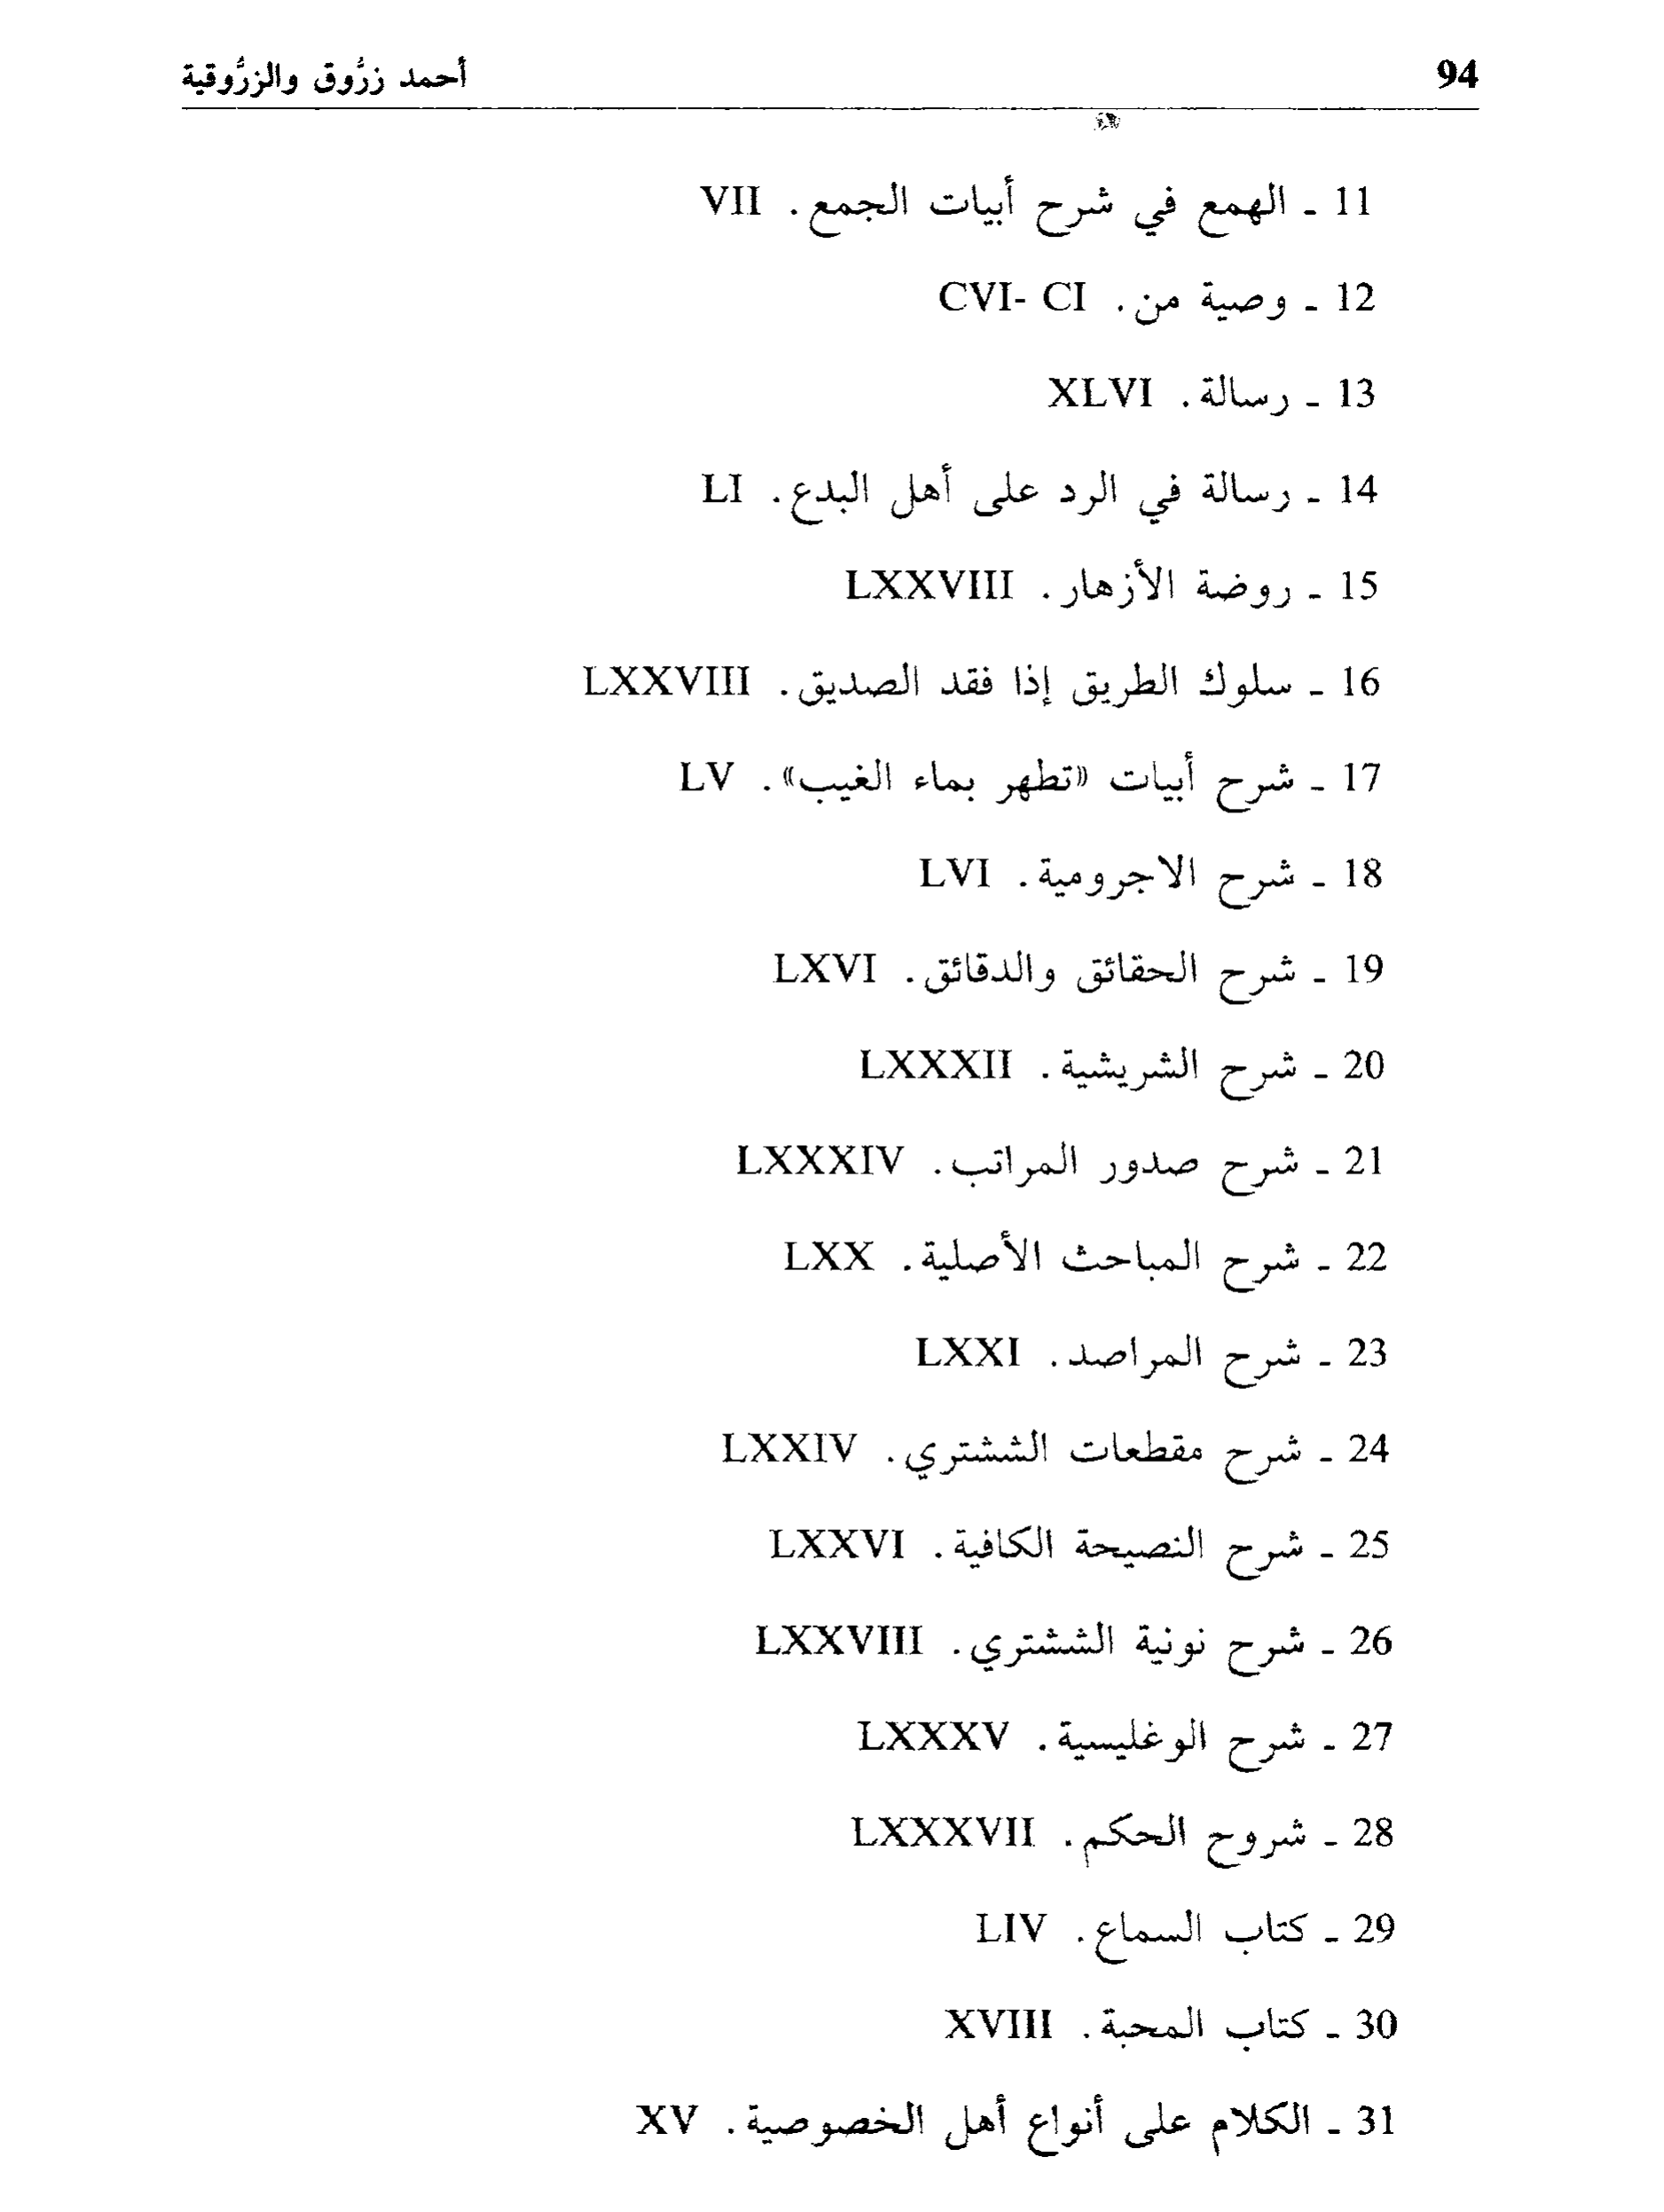 94 أحمد زرُّوق والزرُّوقية
11 ـ الهمع في شرح أبيات الجمع. VII
12 ـ وصية من. CVI- CI
13 ـ رسالة. XLVI
14 ـ رسالة في الرد على أهل البدع. LI
15 ـ روضة الأزهار. LXXVIII
16 ـ سلوك الطريق إذا فقد الصديق. LXXVIII
17 ـ شرح أبيات «تطهر بماء الغيب». LV
18 ـ شرح الاجرومية. LVI
19 ـ شرح الحقائق والدقائق. LXVI
20 ـ شرح الشريشية. LXXXII
21 ـ شرح صدور المراتب. LXXXIV
22 ـ شرح المباحث الأصلية. LXX
23 ـ شرح المراصد. LXXI
24 ـ شرح مقطعات الششتري. LXXIV
25 ـ شرح النصيحة الكافية. LXXVI
26 ـ شرح نونية الششتري. LXXVIII
27 ـ شرح الوغليسية. LXXXV
28 ـ شروح الحكم. LXXXVII
29 ـ كتاب السماع. LIV
30 ـ كتاب المحبة. XVIII
31 ـ الكلام على أنواع أهل الخصوصية. XV